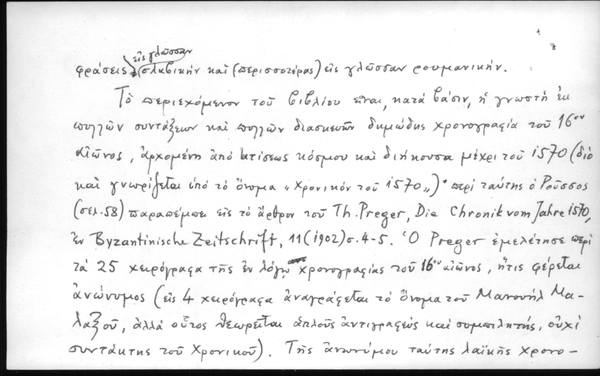 εἰς γλῶσσαν
φράσεις σλαβικὴν καὶ (περισσοτέρας) εἰς γλῶσσαν ρουμανικήν.
Τὸ περιεχόμενον τοῦ βιβλίου εἶναι, κατὰ βάσιν, ἡ γνωστὴ ἐκ
πολλῶν συντάξεων καὶ πολλῶν διασκευῶν δημώδης χρονογραφία τοῦ 16ου
αἰῶνος, ἀρχομένη ἀπὸ κτίσεως κόσμου καὶ διήκουσα μέχρι τοῦ 1570 (διὸ
καὶ γνωρίζεται ὑπὸ τὸ ὄνομα "Χρονικόν τοῦ 1570")· περὶ ταύτης ὁ Ροῦσσος
(σελ. 58) παραπέμπει εἰς τὸ ἄρθρον τοῦ Th. Preger, Die Chronik vom Jahre 1570,
ἐν Byzantinische Zeitschrift, 11 (1902) σ. 4-5. Ὁ Preger ἐμελέτησε περὶ
τὰ 25 χειρόγραφα τῆς ἐν λόγῳ χρονογραφίας τοῦ 16ου αἰῶνος, ἥτις φέρεται
ἀνώνυμος (εἰς 4 χειρόγραφα ἀναγράφεται τὸ ὄνομα τοῦ Μανουὴλ Μα-
λαξοῦ, ἀλλὰ οὗτος θεωρεῖται ἁπλοῦς ἀντιγραφεὺς καὶ συμπιλητής, οὐχὶ
συντάκτης τοῦ Χρονικοῦ). Τῆς ἀνωνύμου ταύτης λαϊκῆς χρονο-